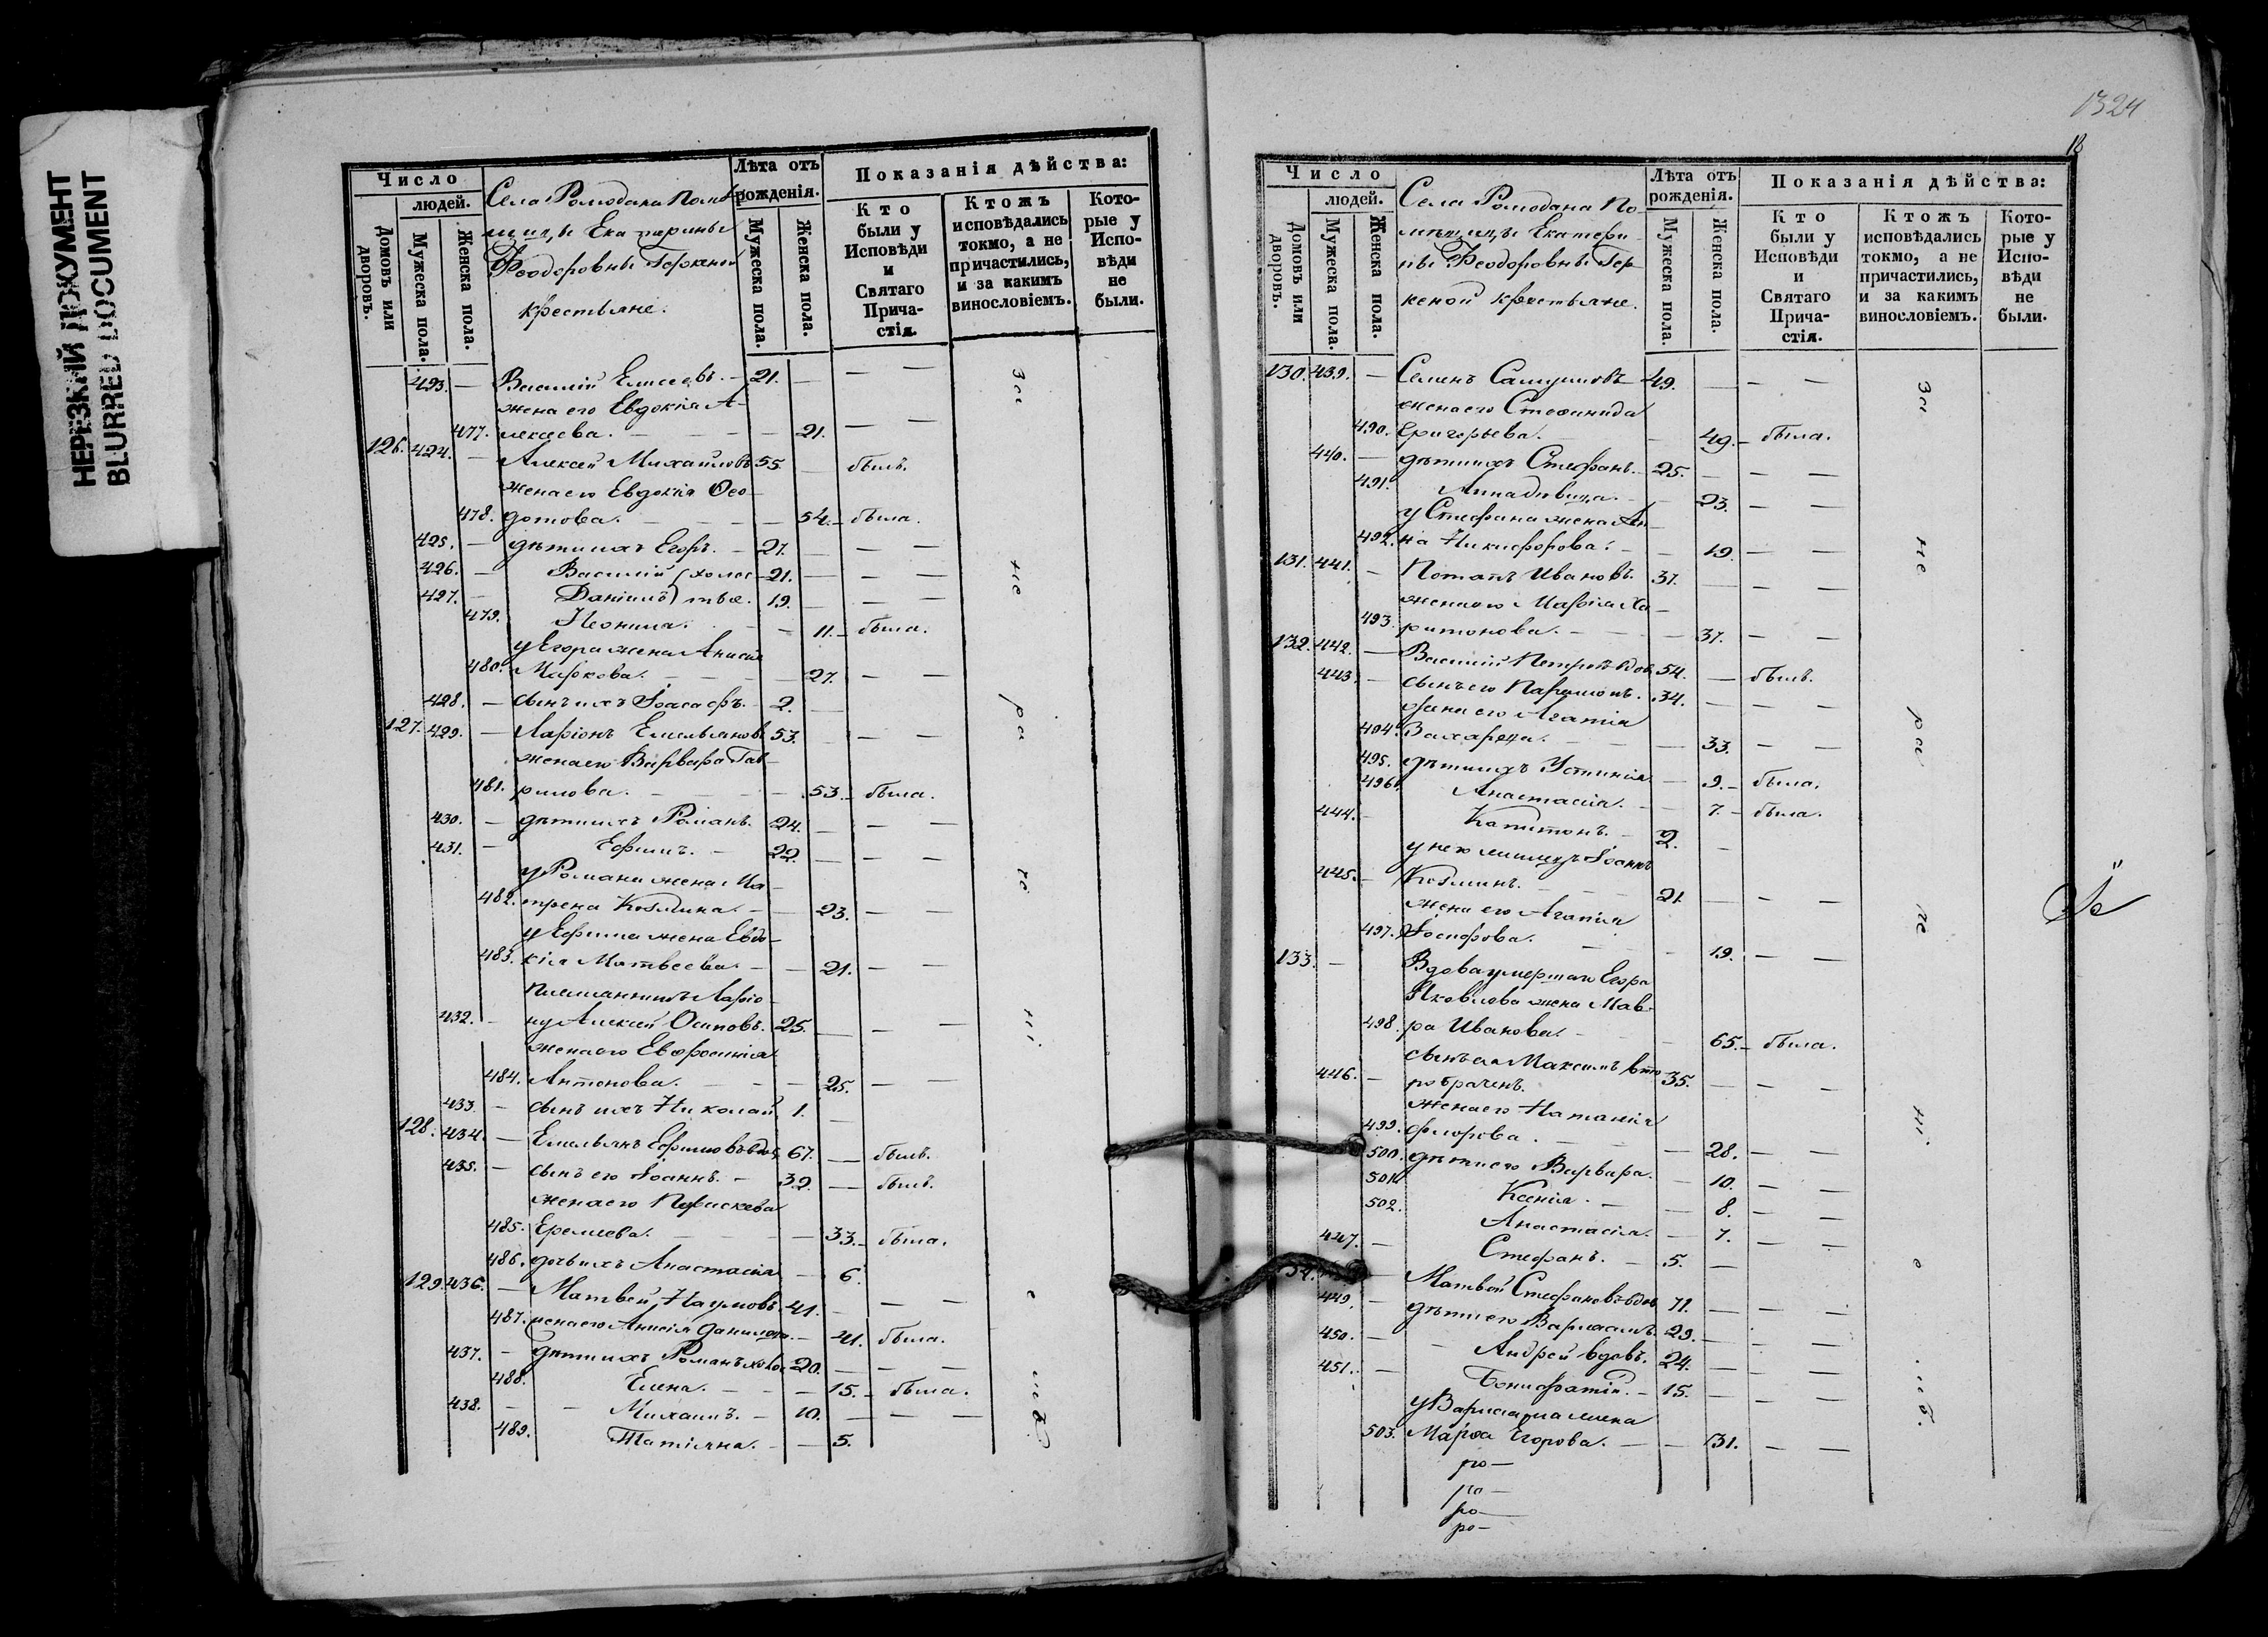 НЕРЕЗКИЙ ДОКУМЕНТ
BLURRED DOCUMENT
Число
людей.
Домовъ или дворовъ.
Мужеска пола.
Женска пола.
Села Ромодана Помѣ-
щицы Екатерины
Феодоровны
крестьяне.
Лѣта отъ рожденія.
Мужеска пола.
Женска пола.
Показанія дѣйства:
Кто были у Исповѣди и Святаго Причастія.
Ктожъ исповѣдались токмо, а не причастились, и за какимъ винословіемъ.
Которые у Исповѣди не были.
423. — Василій Елисеевъ. — 21. — — —
жена его Евдокія А-
477. лексеева. — — — 21. — —
126. 424. — Алексей Михайловъ 55. — былъ.
жена его Евдокія Ѳео-
478. дотова. — — — 54. — была.
425. — дѣти ихъ Егоръ. — 27. — — —
426. — Василій (холос- 21. — — —
427. — Даніилъ) тые. 19. — — —
479. Неонила. — 11. — была.
у Егора жена Анисія
480. Маркова. — — — 27. — —
428. — сынъ ихъ Іоасафъ. 2. —
127. 429. — Ларіонъ Емельяновъ 53. — — —
жена его Варвара Гав-
481. рилова. — — — 53. — была.
430. — дѣти ихъ Романъ. 24. — — —
431. — Ефимъ. — 22. — — —
у Романа жена Ма-
482. трена Козмина. — — 23. — —
у Ефима жена Евдо-
483. кія Матвеева. — — 21. — —
племянникъ Ларіо-
432. — ну Алексей Осиповъ. 25. — — —
жена его Евфросинія
484. Антонова. — — — 25. — —
433. — сынъ ихъ Николай 1. —
128. 434. — Емельянъ Ефимовъ вдов. 67. — былъ.
435. — сынъ его Іоаннъ. — 32. — былъ.
жена его Параскева
485. Еремеева. — — 33. — была.
486. дочь ихъ Анастасія — 6.
129. 436. — Матвей Наумовъ 41. — — —
487. жена его Анисія Данилова. — 41. была.
437. — дѣти ихъ Романъ холос. 20. — — —
488. Елена. — — — 15. — была.
438. — — Михаилъ. — 10. — — —
489. Татіяна. — — 5.
за не ра че ні е
1324
18
Число
людей.
Домовъ или дворовъ.
Мужеска пола.
Женска пола.
Села Ромодана По-
мѣщицы Екатери-
ны Феодоровны Гер-
кеной крестьяне.
Лѣта отъ рожденія.
Мужеска пола.
Женска пола.
Показанія дѣйства:
Кто были у Исповѣди и Святаго Причастія.
Ктожъ исповѣдались токмо, а не причастились, и за какимъ винословіемъ.
Которые у Исповѣди не были.
130. 439. — Семенъ Самуиловъ 49. — — —
жена его Стефанида
490. Григорьева. — 49. — была.
440. — дѣти ихъ Стефанъ. 25. — — —
491. — 23. — —
у Стефана жена Ан-
492. на Никифорова. — — 19. — —
131. 441. — Потапъ Ивановъ. 37. — — —
жена его Марѳа Ха-
493. ритонова. — — — 37. — —
132. 442. — Василій Петровъ вдов. 54. — былъ.
443. — сынъ его Парамонъ. 34. — — —
жена его Агафія
494. Захарова. — — 33. — —
495. дѣти ихъ Устинія — 9. — была.
496. Анастасія. — — 7. — была.
444. — Капитонъ. — 2. —
у него Іоаннъ
445. — Козминъ. — — 21. — — —
жена его Агафія
497. — — 19. — —
133. — Вдова умершаго Егора
Яковлева жена Мав-
498. ра Иванова. — — 65. — была.
сынъ ея Максимъ вто-
446. — робраченъ. 35. — — —
жена его Наталія
499. Флорова. — — — 28. — —
500. дѣти его Варвара. — 10. — —
501. Ксенія. — — 8. — —
502. Анастасія. — 7. — —
447. — Стефанъ. — 5. —
— Матвей Стефановъ вдов. 71. — — —
449. — дѣти его Варлаамъ. 29. — — —
450. — — Андрей вдовъ. 24. — — —
451. — Бонифатій. — 15. — — —
у Варлаама жена
503. Марѳа Егорова. — — 31. — —
ро—
ро—
ро—
ро—
за не ра че ні е